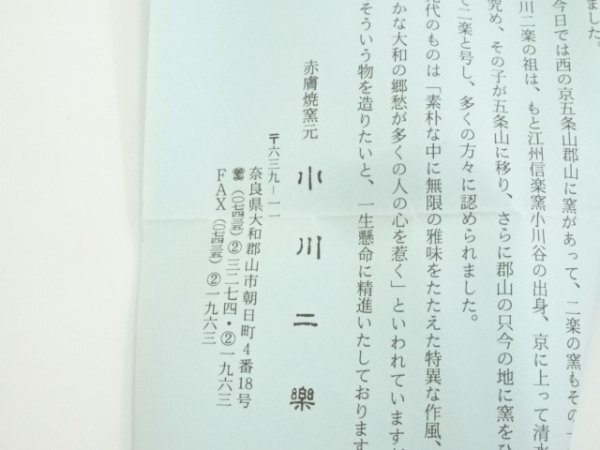 ました。
今日では西の京五条山郡山に窯があって、二楽の窯もその一
川二楽の祖は、もと江州信楽窯小川谷の出身、京に上って清水
究め、その子が五条山に移り、さらに郡山の只今の地に窯をひ
て二楽と号し、多くの方々に認められました。
代のものは「素朴な中に無限の雅味をたたえた特異な作風、
かな大和の郷愁が多くの人の心を惹く」といわれています
そういう物を造りたいと、一生懸命に精進いたしております
赤膚焼窯元 小川二樂
〒六三九-一一
奈良県大和郡山市朝日町4番18号
☎(〇七四三五)②三二七四・②一九六三
FAX(〇七四三五)②一九六三